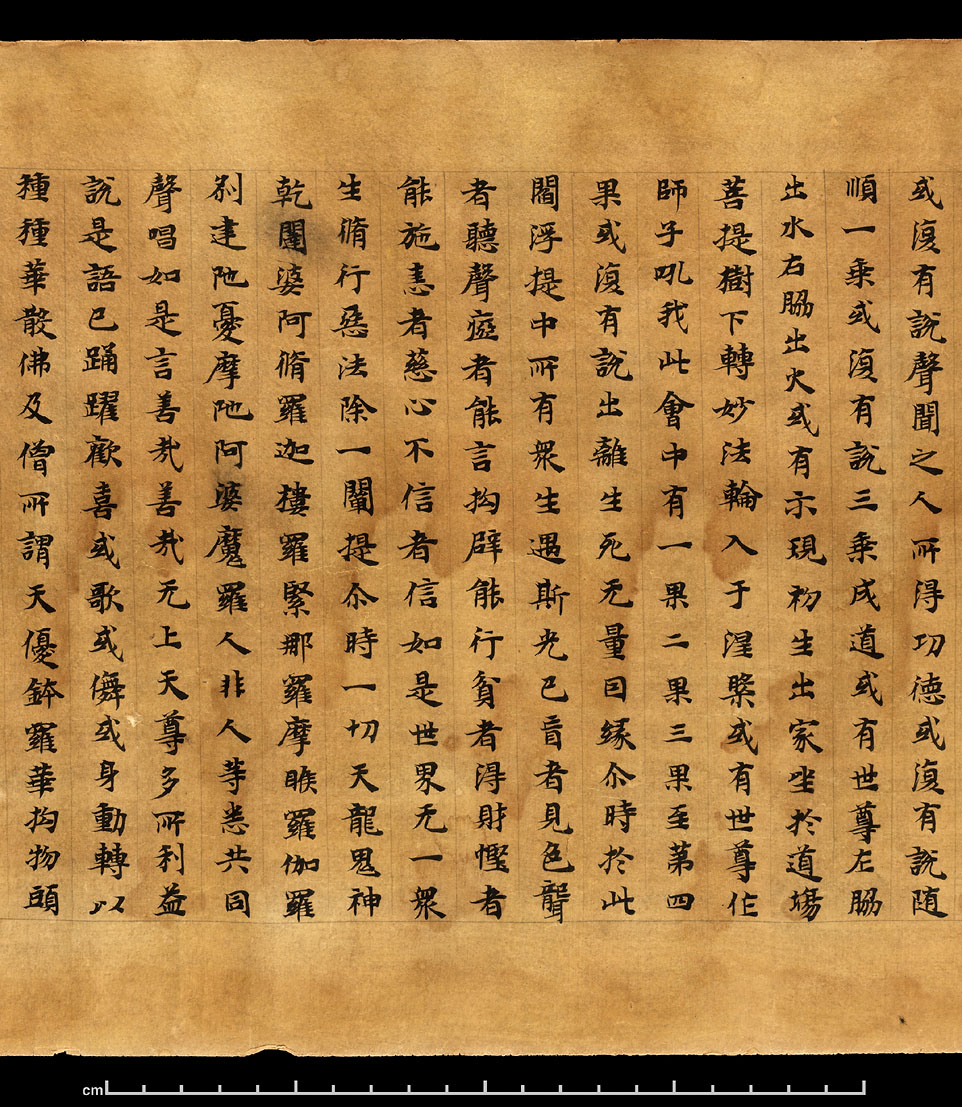 或復有說聲聞之人所得功德或復有說随
順一乘或復有說三乘成道或有世尊左脇
出水右脇出火或有示現初生出家坐於道場
菩提樹下轉妙法輪入于涅槃或有世尊作
師子吼我此會中有一果二果三果至第四
果或復有說出離生死无量因縁尒時於此
閻浮提中所有衆生遇斯光已盲者見色聾
者聽聲瘂者能言拘辟能行貧者得財慳者
能施恚者慈心不信者信如是世界无一衆
生脩行惡法除一闡提尒時一切天龍鬼神
乾闥婆阿脩羅迦樓羅緊那羅摩睺羅伽羅
剎建陁憂摩陁阿婆魔羅人非人等悉共同
聲唱如是言善哉善哉无上天尊多所利益
說是語已踊躍歡喜或歌或儛或身動轉以
種種華散佛及僧所謂天優鉢羅華拘物頭
cm